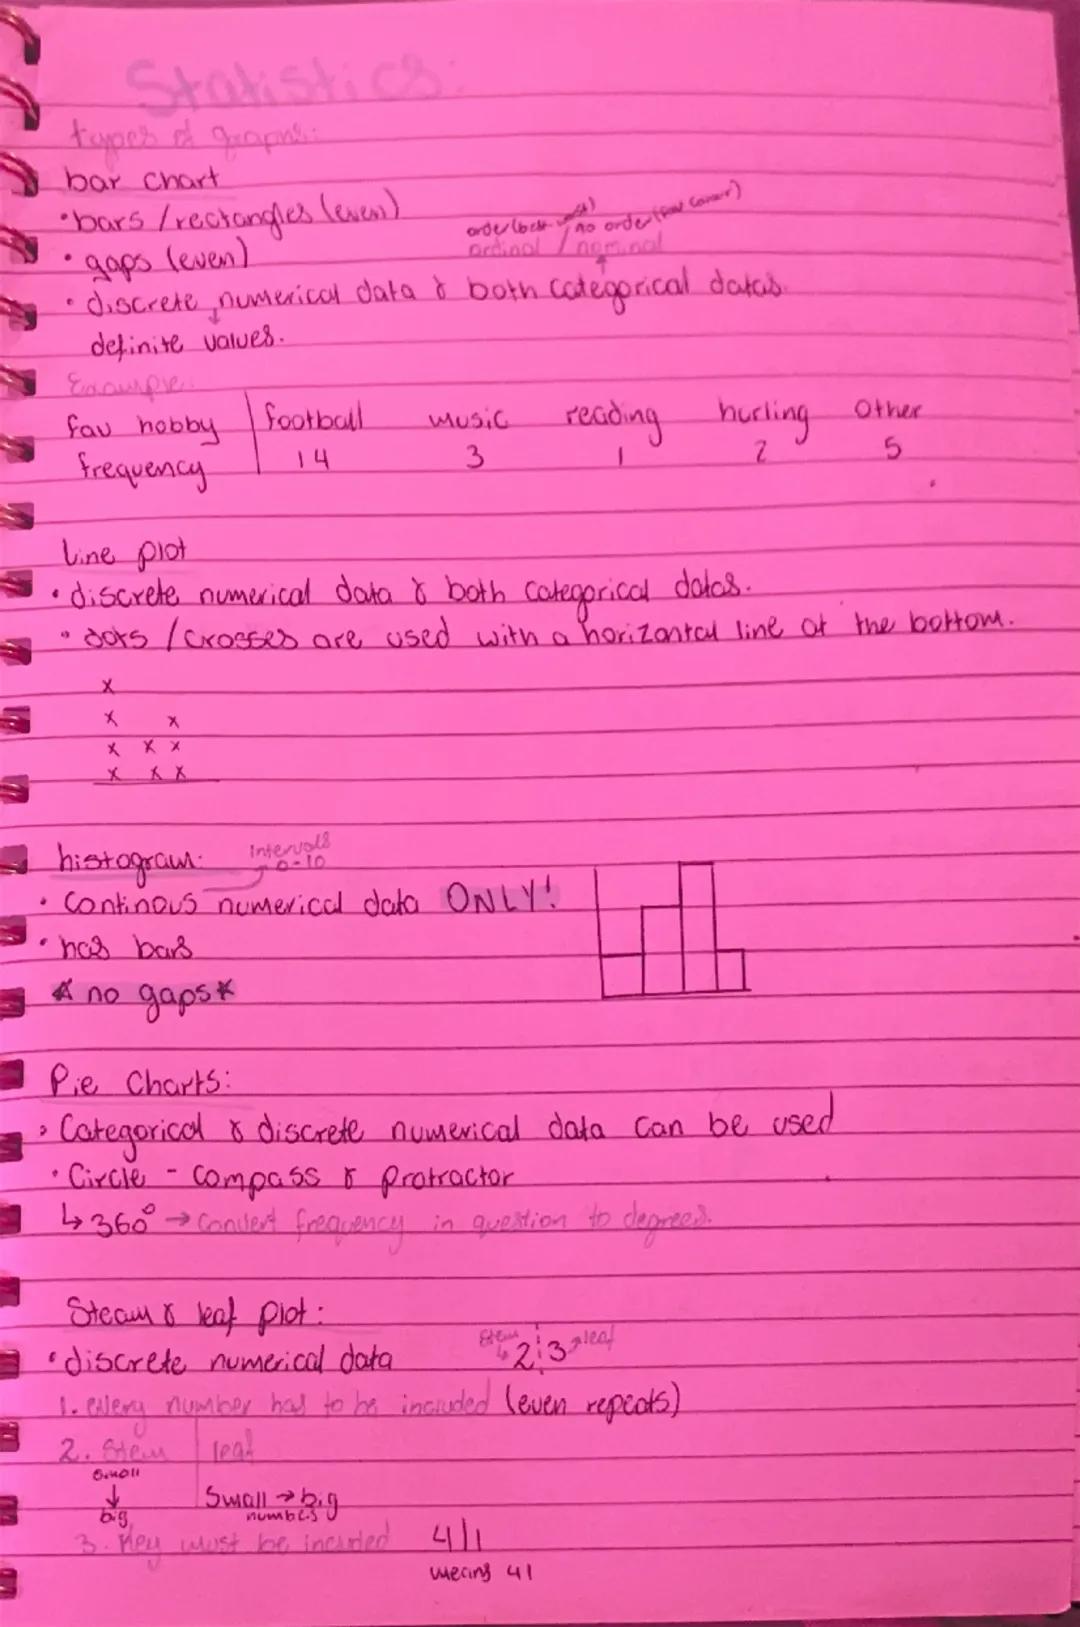 Statistics:
types of graphs:
bar chart
• bars / rectangles (even)
order (best worst) / no order (fav colour)
• gaps (even)
ordinal / nominal
• discrete numerical data & both categorical datas.
definite values.
Example:
fav hobby | football music reading hurling Other
frequency | 14 3 1 2 5
Line plot
• discrete numerical data & both categorical datas.
• dots / crosses are used with a horizontal line at the bottom.
x
x x
x x x
x x x
histogram: intervals
0-10
• Continous numerical data ONLY!
• has bars
* no gaps *
Pie Charts:
• Categorical & discrete numerical data can be used
• Circle - Compass & Protractor
↳ 360° → Convert frequency in question to degrees.
Steam & leaf plot:
• discrete numerical data stem 2¦3 leaf
1. every number has to be included (even repeats)
2. Stem | leaf
small
↓ big
Small → big
numbers
3. Key must be included 4|1
meaing 41